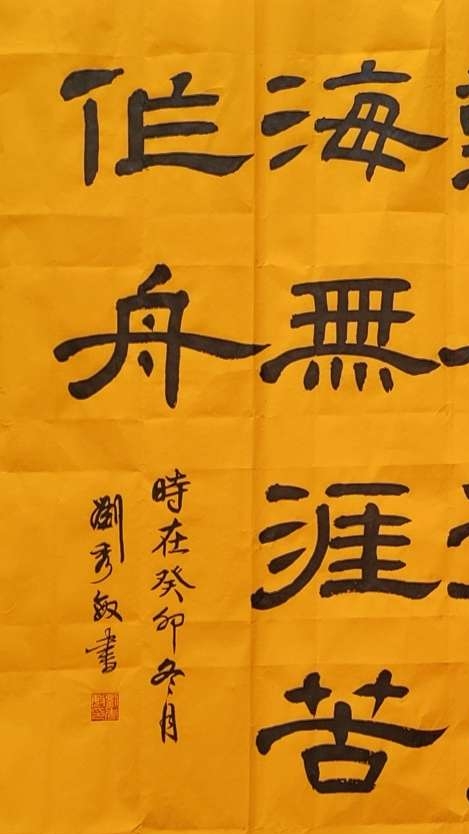 海無涯苦
作舟
時在癸卯冬月
劉秀敏書